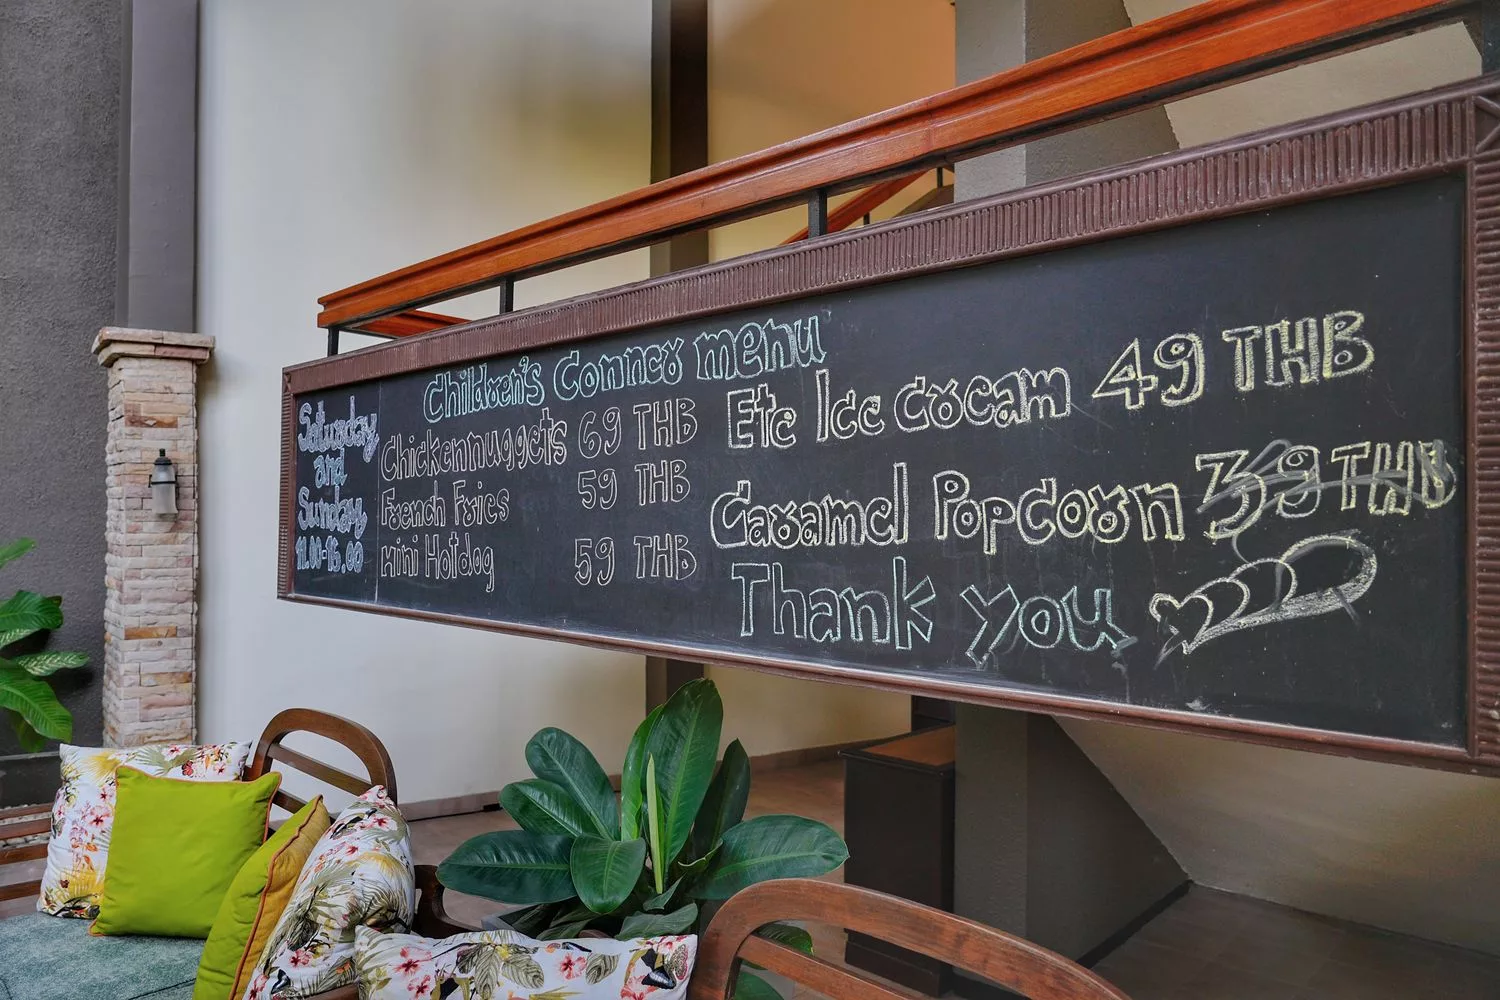 Saturday
and
Sunday
11.00-15.00
Children's Conner menu
Chickennuggets 69 THB
French Fries 59 THB
mini Hotdog 59 THB
Etc Ice Cream 49 THB
Caramel Popcorn 39 THB
Thank you